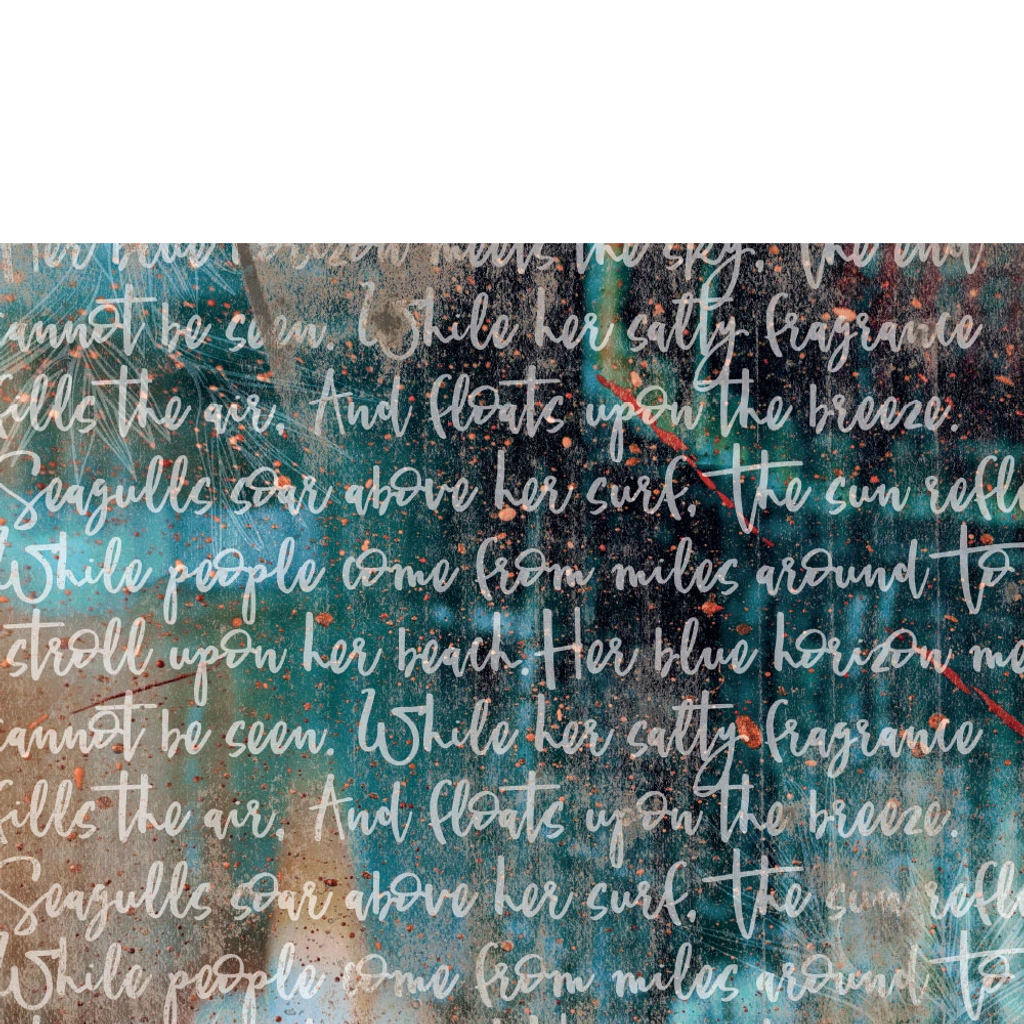 Her blue horizon meets the sky, The end
cannot be seen. While her salty fragrance
fills the air, And floats upon the breeze.
Seagulls soar above her surf, The sun refle
While people come from miles around To
stroll upon her beach.Her blue horizon me
cannot be seen. While her salty fragrance
fills the air, And floats upon the breeze.
Seagulls soar above her surf, The sun refle
While people come from miles around To